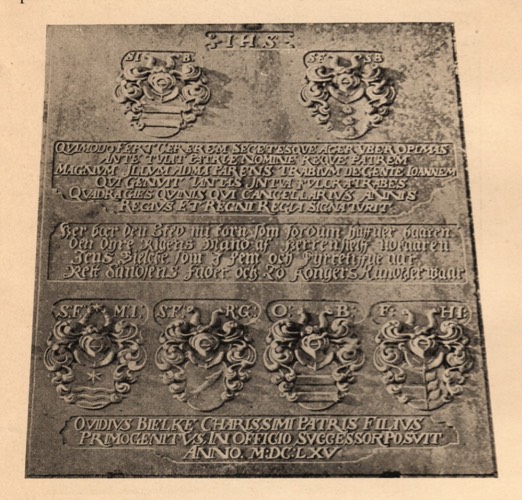 IHS
S.I. B.
S.F. S.B.
QUIMODO FERT CEREREM SEGETESQUE AGER UBER OPIMAS
ANTE TULIT PATRIÆ NOMINE REQUE PATREM
MAGNUM ILLUM ADMA PARENS TRABIUM DE GENTE IOANNEM
QUI GENUIT PULCRA TRABES
QUADRAGIES QUINIS QUI CANCELLARIUS ANNIS
REGIUS ET REGNI REGIA SIGNA TURIT
Her bær den Sted nu korn som fordum hafuer baaren
Den dyre Rigens Mand af Herren
Jens Bielche som 5 fem och fyrretifue aar
Rett Landsens Fader och Kongers waar
S.F. M.I.
S.F. RG:
O: B:
F: HI:
OVIDIUS BIELKE CHARISSIMI PATRIS FILIUS
PRIMOGENITUS. IN OFFICIO SUCCESSOR POSUIT
ANNO. M:DC:LXV